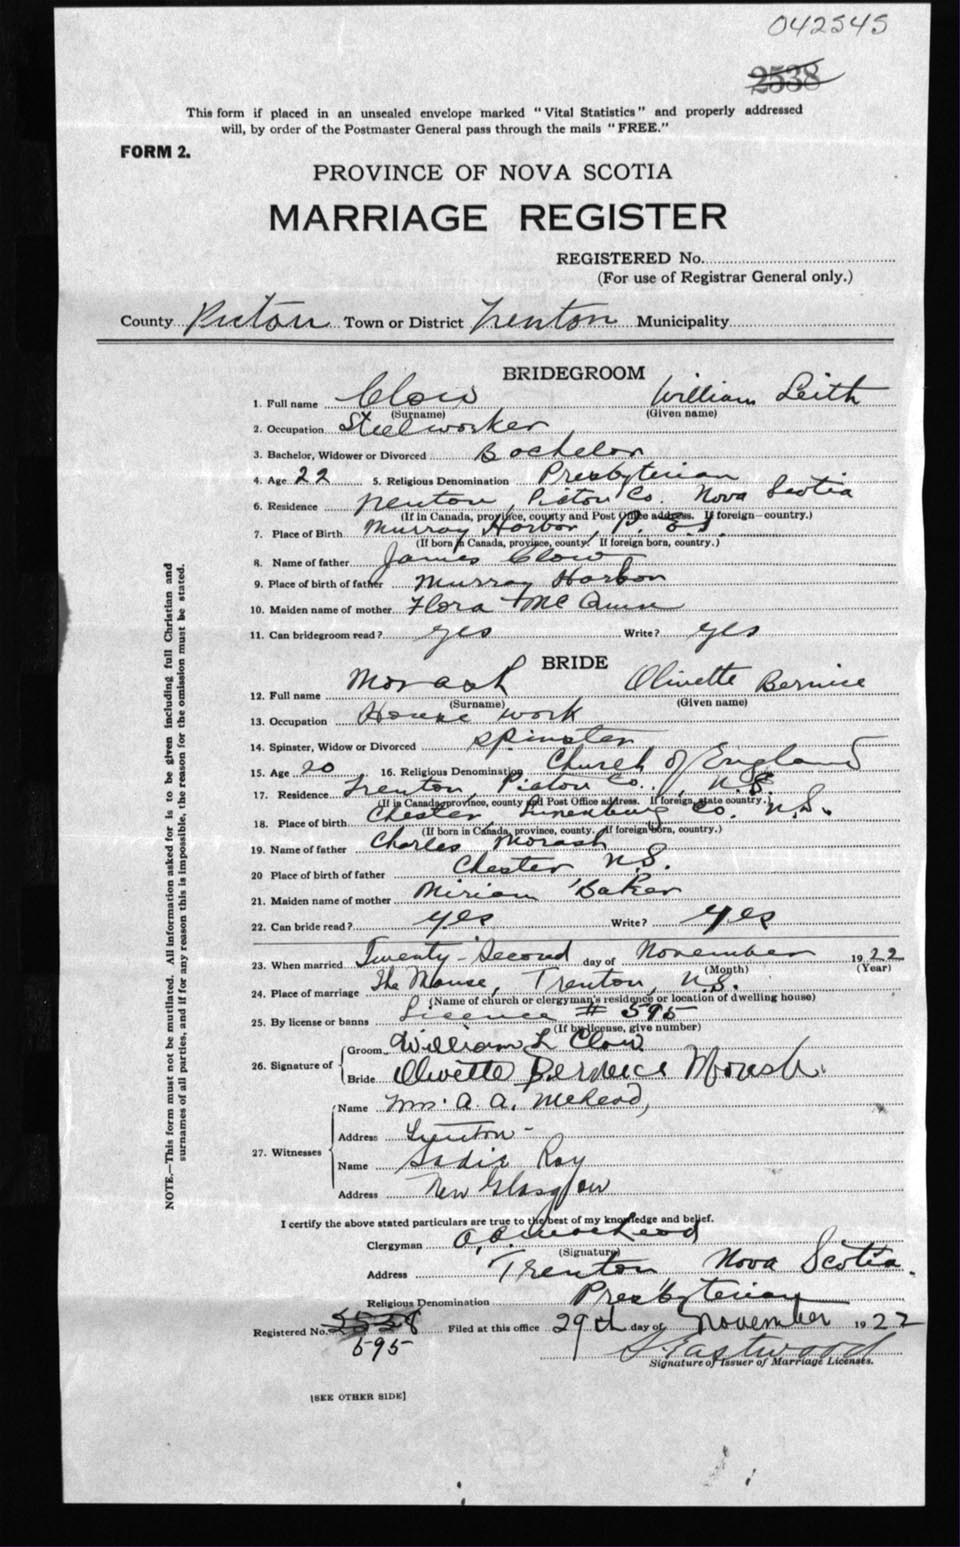 042545
2538
This form if placed in an unsealed envelope marked "Vital Statistics" and properly addressed
will, by order of the Postmaster General pass through the mails "FREE."
FORM 2.
PROVINCE OF NOVA SCOTIA
MARRIAGE REGISTER
REGISTERED No.
(For use of Registrar General only.)
County Pictou Town or District Trenton Municipality
BRIDEGROOM
1. Full name Clow William Leith
(Surname) (Given name)
2. Occupation Steelworker
3. Bachelor, Widower or Divorced Bachelor
4. Age 22 5. Religious Denomination Presbyterian
6. Residence Trenton, Pictou Co. Nova Scotia
(If in Canada, province, county and Post Office address. If foreign—country.)
7. Place of Birth Murray Harbor, P. E. I.
(If born in Canada, province, county. If foreign born, country.)
8. Name of father James Clow
9. Place of birth of father Murray Harbor
10. Maiden name of mother Flora
11. Can bridegroom read? yes Write? yes
BRIDE
12. Full name Morash Olivette Bernice
(Surname) (Given name)
13. Occupation House work
14. Spinster, Widow or Divorced spinster
15. Age 20 16. Religious Denomination Church of England
17. Residence Trenton, Pictou Co., N.S.
(If in Canada province, county and Post Office address. If foreign, state country.)
18. Place of birth Chester, Lunenburg Co. N.S.
(If born in Canada, province, county. If foreign born, country.)
19. Name of father Charles Morash
20 Place of birth of father Chester N.S.
21. Maiden name of mother Miriam Baker
22. Can bride read? yes Write? yes
23. When married Twenty-Second day of November 1922
(Month) (Year)
24. Place of marriage The Manse, Trenton, N.S.
(Name of church or clergyman's residence or location of dwelling house)
25. By license or banns Licence # 595
(If by license, give number)
26. Signature of
Groom William L Clow
Bride Olivette Bernice Morash.
27. Witnesses
Name Mrs. A. A. McLeod,
Address Trenton-
Name Sadie Ray
Address New Glasgow
I certify the above stated particulars are true to the best of my knowledge and belief.
Clergyman A. A. MacLeod
(Signature)
Address Trenton Nova Scotia.
Religious Denomination Presbyterian
Registered No. 2538 Filed at this office 29th day of November 1922
595
Eastwood
Signature of Issuer of Marriage Licenses.
[SEE OTHER SIDE]
NOTE.—This form must not be mutilated. All information asked for is to be given including full Christian and
surnames of all parties, and if for any reason this is impossible, the reason for the omission must be stated.